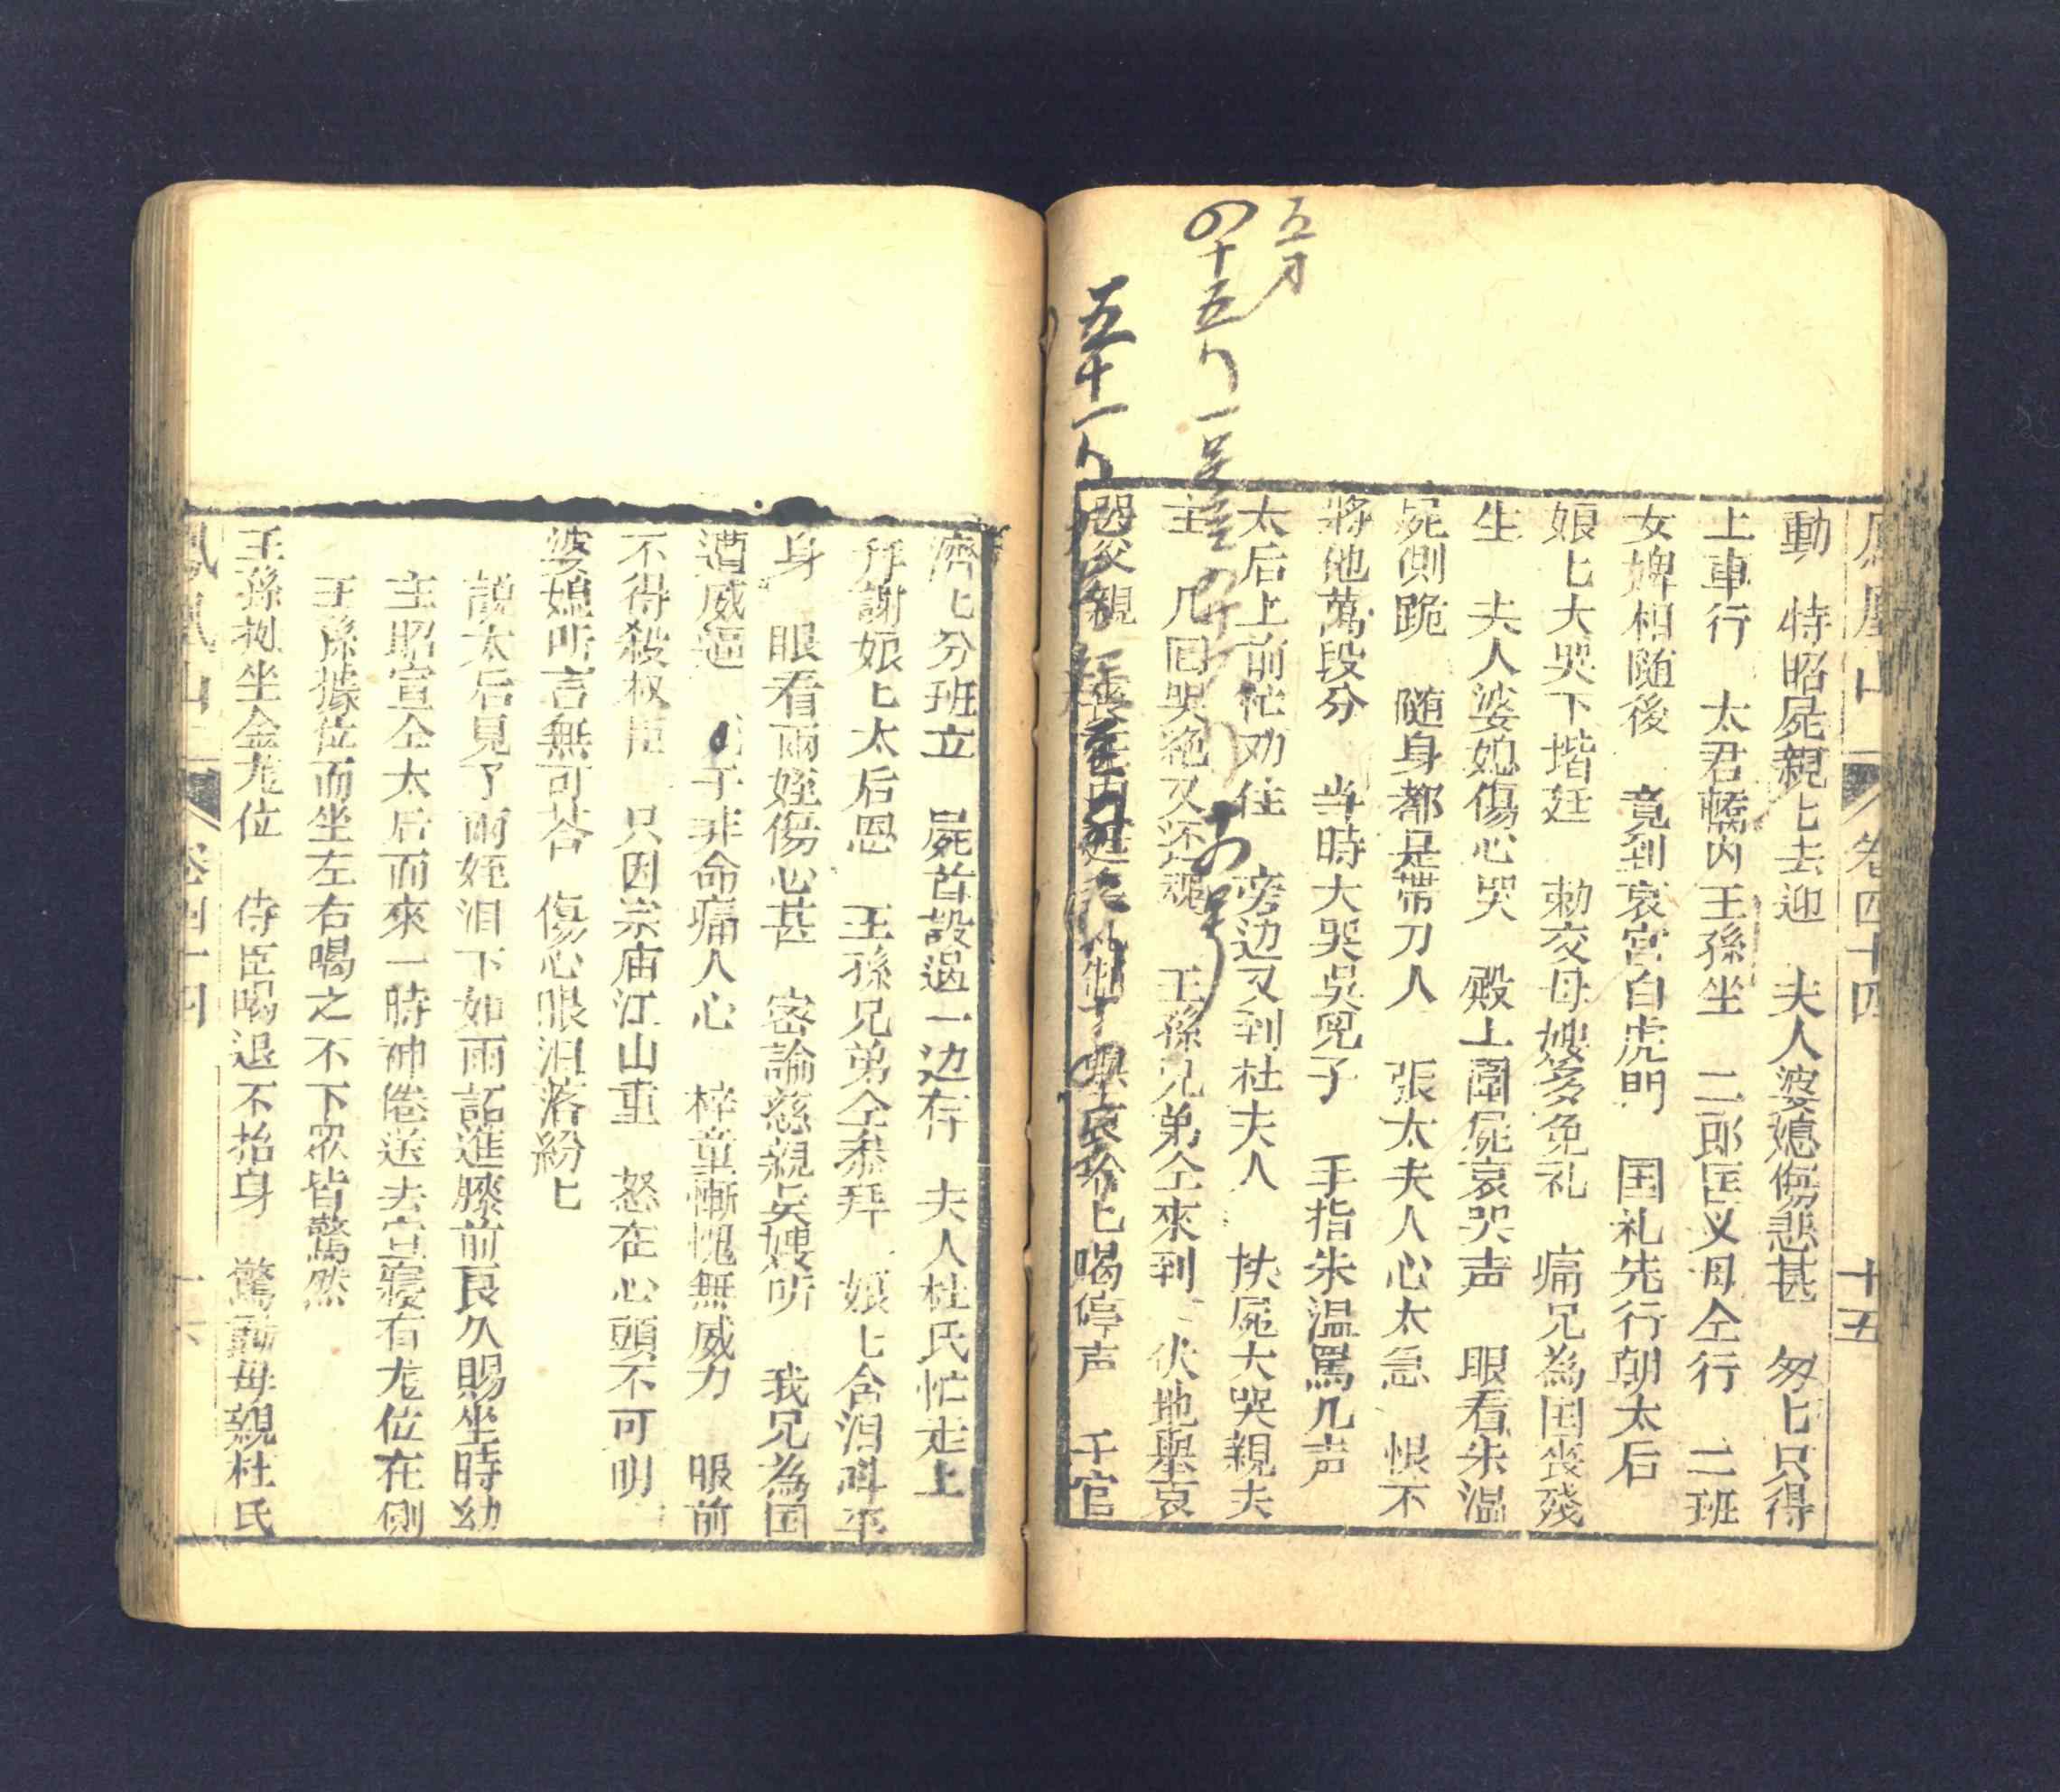 鳳凰山 卷四十四 十五
動 特昭屍親匕去迎 夫人婆媳傷悲甚 匆匕只得
上車行 太君轎內王孫坐 二郎匡义母仝行 二班
女婢相随後 竟到哀宮白虎門 国礼先行朝太后
娘匕大哭下堦廷 勅交母嫂多免礼 痛兄為国丧殘
生 夫人婆媳傷心哭 殿上圍屍哀哭声 眼看朱温
屍側跪 随身都是帶刀人 張太夫人心太急 恨不
將他萬段分 当時大哭吳兒子 手指朱温罵几声
太后上前忙劝住 旁边又到杜夫人 扶屍大哭親夫
主 几回哭绝又还魂 王孫兄弟仝來到 伏地舉哀
父親 匕喝停声 千官
五才
の十五
五十一
濟匕分班立 屍首設過一边存 夫人杜氏忙走上
拜謝娘匕太后恩 王孫兄弟仝叅拜 娘匕含泪呌平
身 眼看兩姪傷心甚 密論慈親与嫂听 我兄為国
遭威逼 于非命痛人心 梓童慚愧無威力 眼前
不得殺叔臣 只因宗庙江山重 怒在心頭不可明
婆媳听言無可荅 傷心眼泪落紛匕
說太后見了兩姪泪下如雨詔進膝前良久賜坐時幼
主昭宣仝太后而來一時神倦送去宫寢有龙位在側
王孫據位而坐左右喝之不下眾皆驚然
王孫扒坐金龙位 侍臣喝退不抬身 驚動母親杜氏
鳳凰山 卷四十四 十六